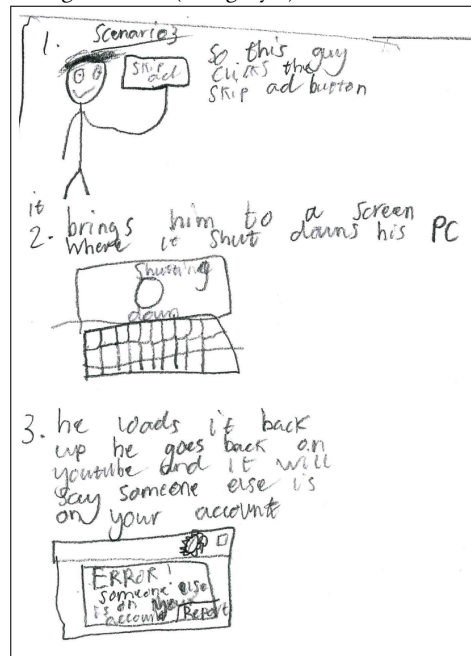 1. Scenario 3
so this guy
clicks the
skip ad button
skip
ad
it
2. brings him to a screen
where it shut downs his PC
Shutting
down
3. he loads it back
up he goes back on
youtube and it will
say someone else is
on your account
ERROR!
someone else
is on your
account Report